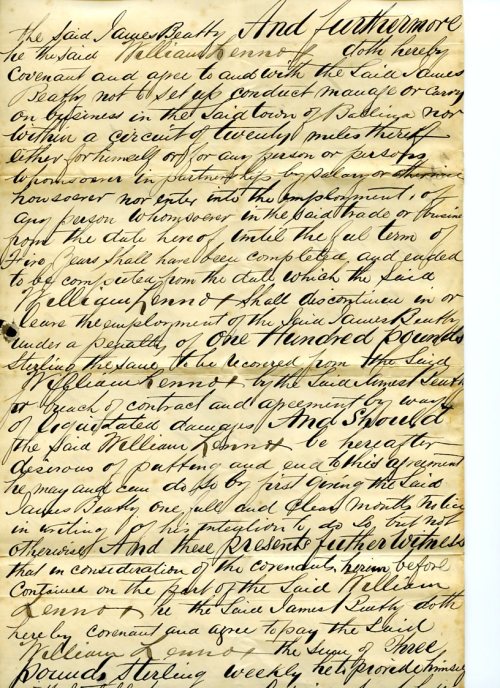 the Said James Beatty And furthermore
he the said William Lennox doth hereby
Covenant and agree to and with the Said James
Beatty not to set up conduct manage or carry
on business in the Said town of Ballina nor
within a circuit of twenty miles thereof
either for himself or for any person or persons
whomsoever in partnership by salary or otherwise
howsoever nor enter into the employment, of
any person whomsoever in the said trade or busine
from the date hereof until the ful term of
Five Years Shall have been completed and ended
to be computed from the date which the Said
William Lennox Shall discontinue in or
leave the employment of the Said James Beatty
under a penalty of One Hundred pounds
Sterling the same to be recovered from the Said
William Lennox by the Said James Beatty
for breach of contract and agreement by way
of liquidated damages And Should
the Said William Lennox be hereafter
desirous of putting and end to this agreement
he may and can do So by first giving the Said
James Beatty one full and Clear months notice
in writing of his intention to do So, but not
otherwise And these presents futher Witness
that in consideration of the covenants herein before
Contained on the part of the Said William
Lennox he the Said James Beatty doth
hereby covenant and agree to pay the Said
William Lennox the Sum of Three
pounds Sterling weekly he to provide himself